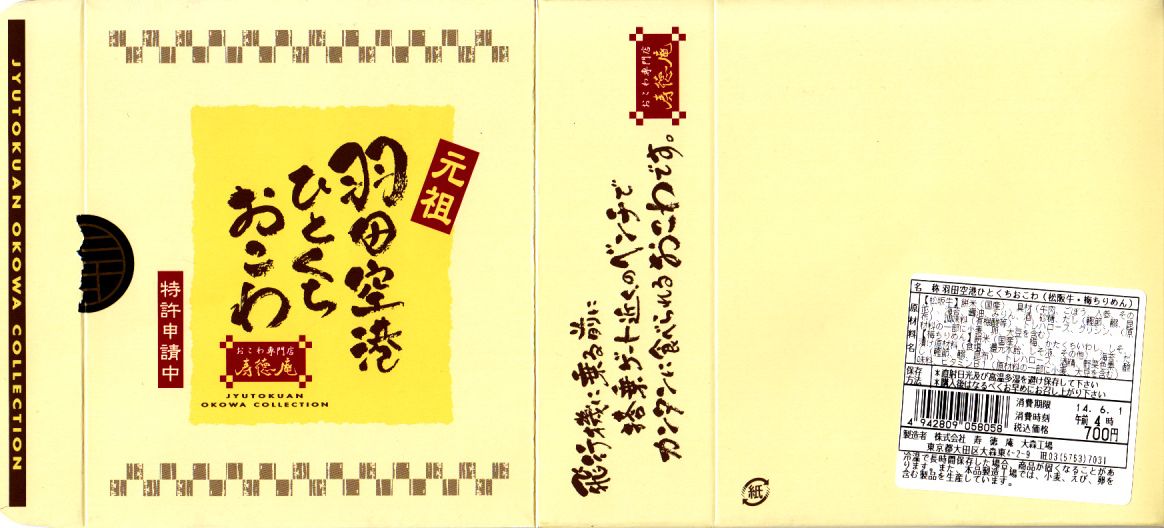 JYUTOKUAN OKOWA COLLECTION
元祖
羽田空港
ひとくち
おこわ
特許申請中
おこわ専門店
寿徳庵
JYUTOKUAN
OKOWA COLLECTION
おこわ専門店
寿徳庵
飛行機に乗る前に
搭乗ゲート近くのベンチで
カンタンに食べられるおこわです。
紙
名 称 羽田空港ひとくちおこわ(松阪牛・梅ちりめん)
原材料名
保存方法
*直射日光及び高温多湿を避け保存して下さい
*購入後はなるべくお早めにお召し上がり下さい
消費期限 14.6.1
消費時刻 午前 4時
税込価格 700円
4942809058058
製造者 株式会社 寿徳庵 大森工場
東京都大田区大森東4-2-9 TEL03(5753)7031
冷温で長時間保存した場合、商品が固くなることがあ
ります。また、本品製造工場では、小麦、えび、卵を
含む製品を生産しています。